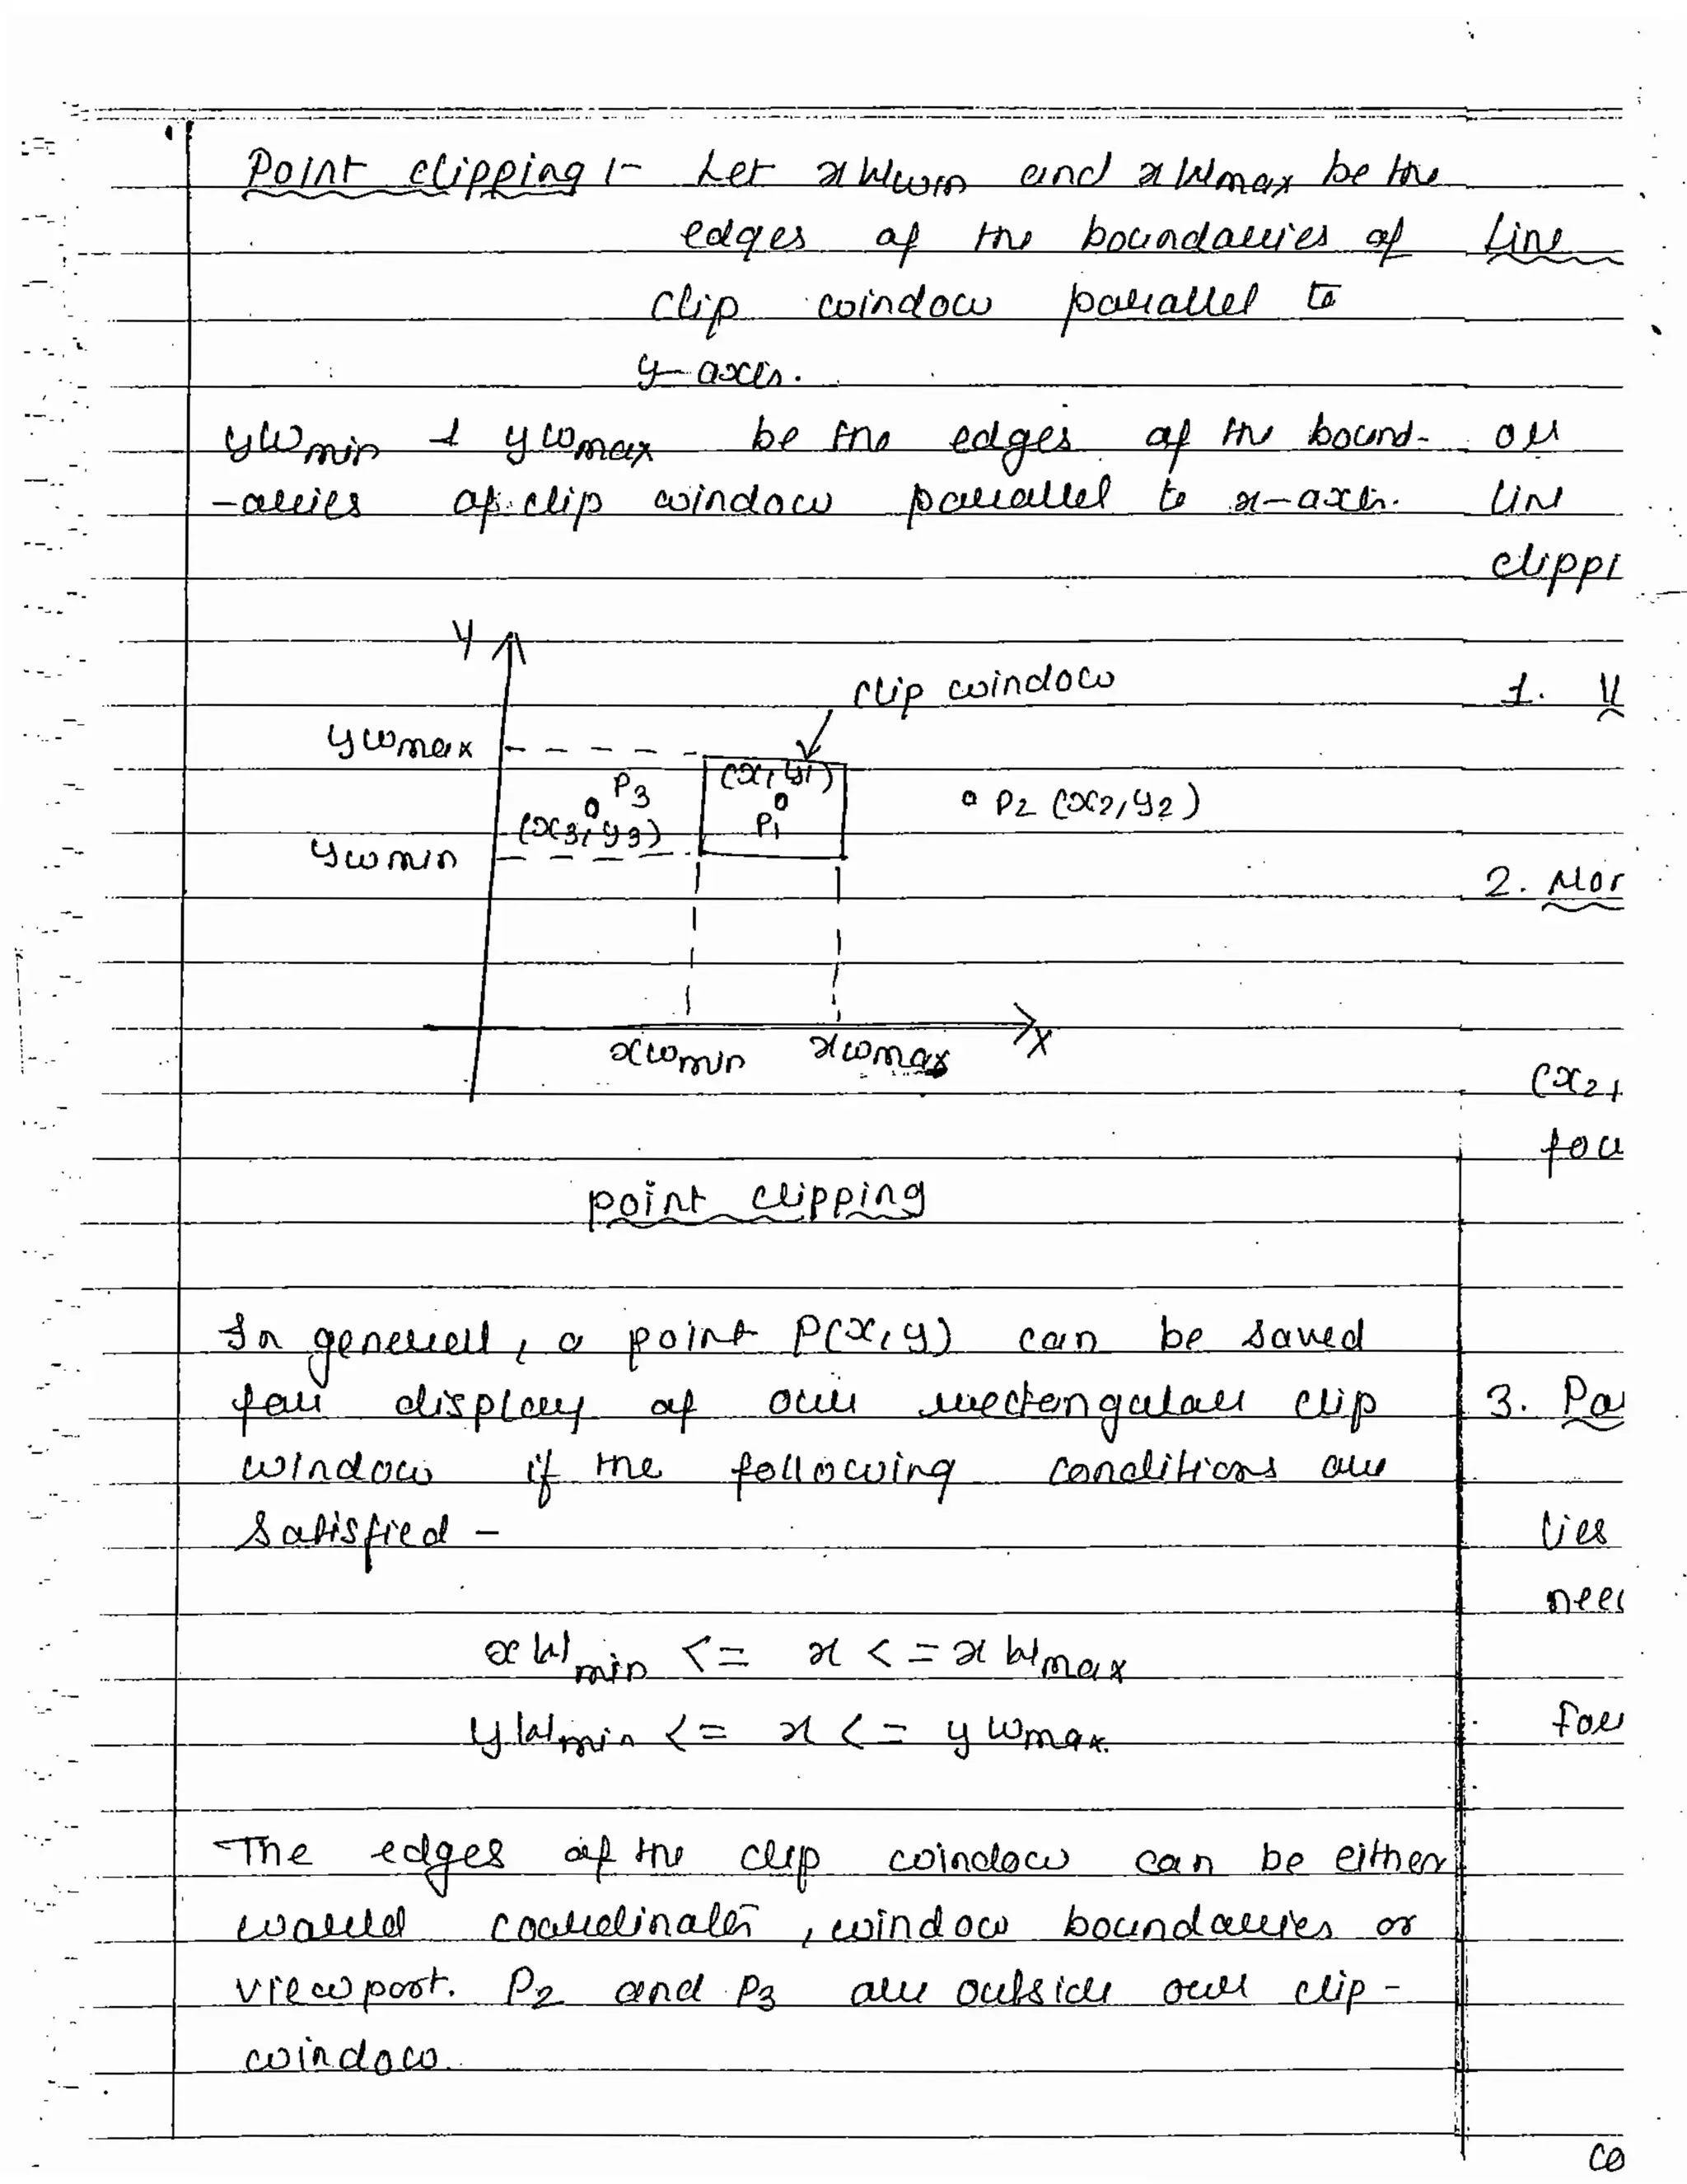 Point clipping :- Let xWmin and xWmax be the
edges of the boundaries of
clip window parallel to
y-axis.
yWmin & ywmax be the edges of the bound-
-aries of clip window parallel to x-axis.
Y
clip window
ywmax
(x1, y1)
P3
P2 (x2, y2)
P1
(x3, y3)
ywmin
X
xwmin xwmax
point clipping
In general, a point P(x, y) can be saved
for display of our rectangular clip
window if the following conditions are
satisfied -
xWmin <= x <= xWmax
yWmin <= x <= ywmax.
The edges of the clip window can be either
world coordinates, window boundaries or
viewport. P2 and P3 are outside our clip-
window.
Line
line
clippi
1.
2.
(x2,
3. Pa
lies
co